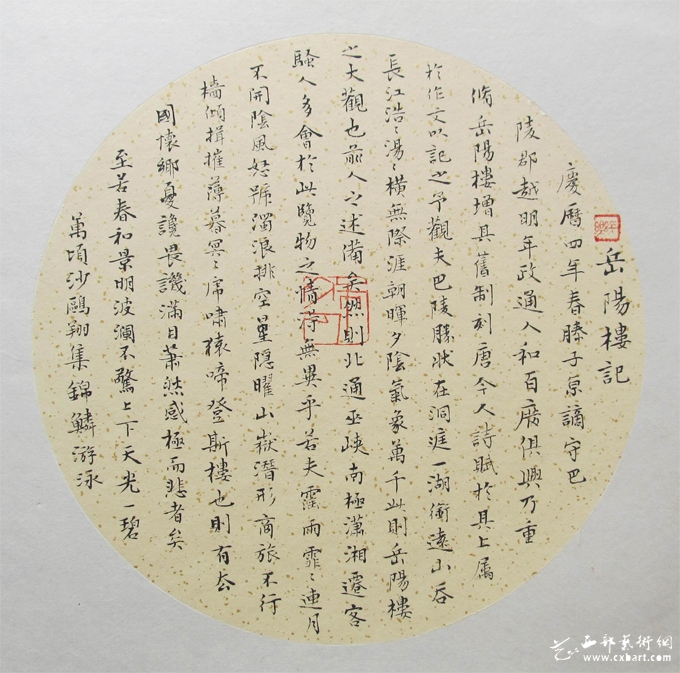 岳陽樓記
慶曆四年春滕子京謫守巴
陵郡越明年政通人和百廢俱興乃重
脩岳陽樓增其舊制刻唐今人詩賦於其上屬
於作文以記之予觀夫巴陵勝狀在洞庭一湖銜遠山吞
長江浩〻湯〻橫無際涯朝暉夕陰氣象萬千此則岳陽樓
之大觀也前人之述備矣然則北通巫峽南極瀟湘遷客
騷人多會於此覽物之情得無異乎若夫霪雨霏〻連月
不開陰風怒號濁浪排空星隱曜山嶽潛形商旅不行
檣傾揖摧薄暮冥〻虎嘯猿啼登斯樓也則有去
國懷鄉憂讒畏譏滿目蕭然感極而悲者矣
至若春和景明波瀾不驚上下天光一碧
萬頃沙鷗翔集錦鱗游泳
西部藝術網
www.cxbart.com